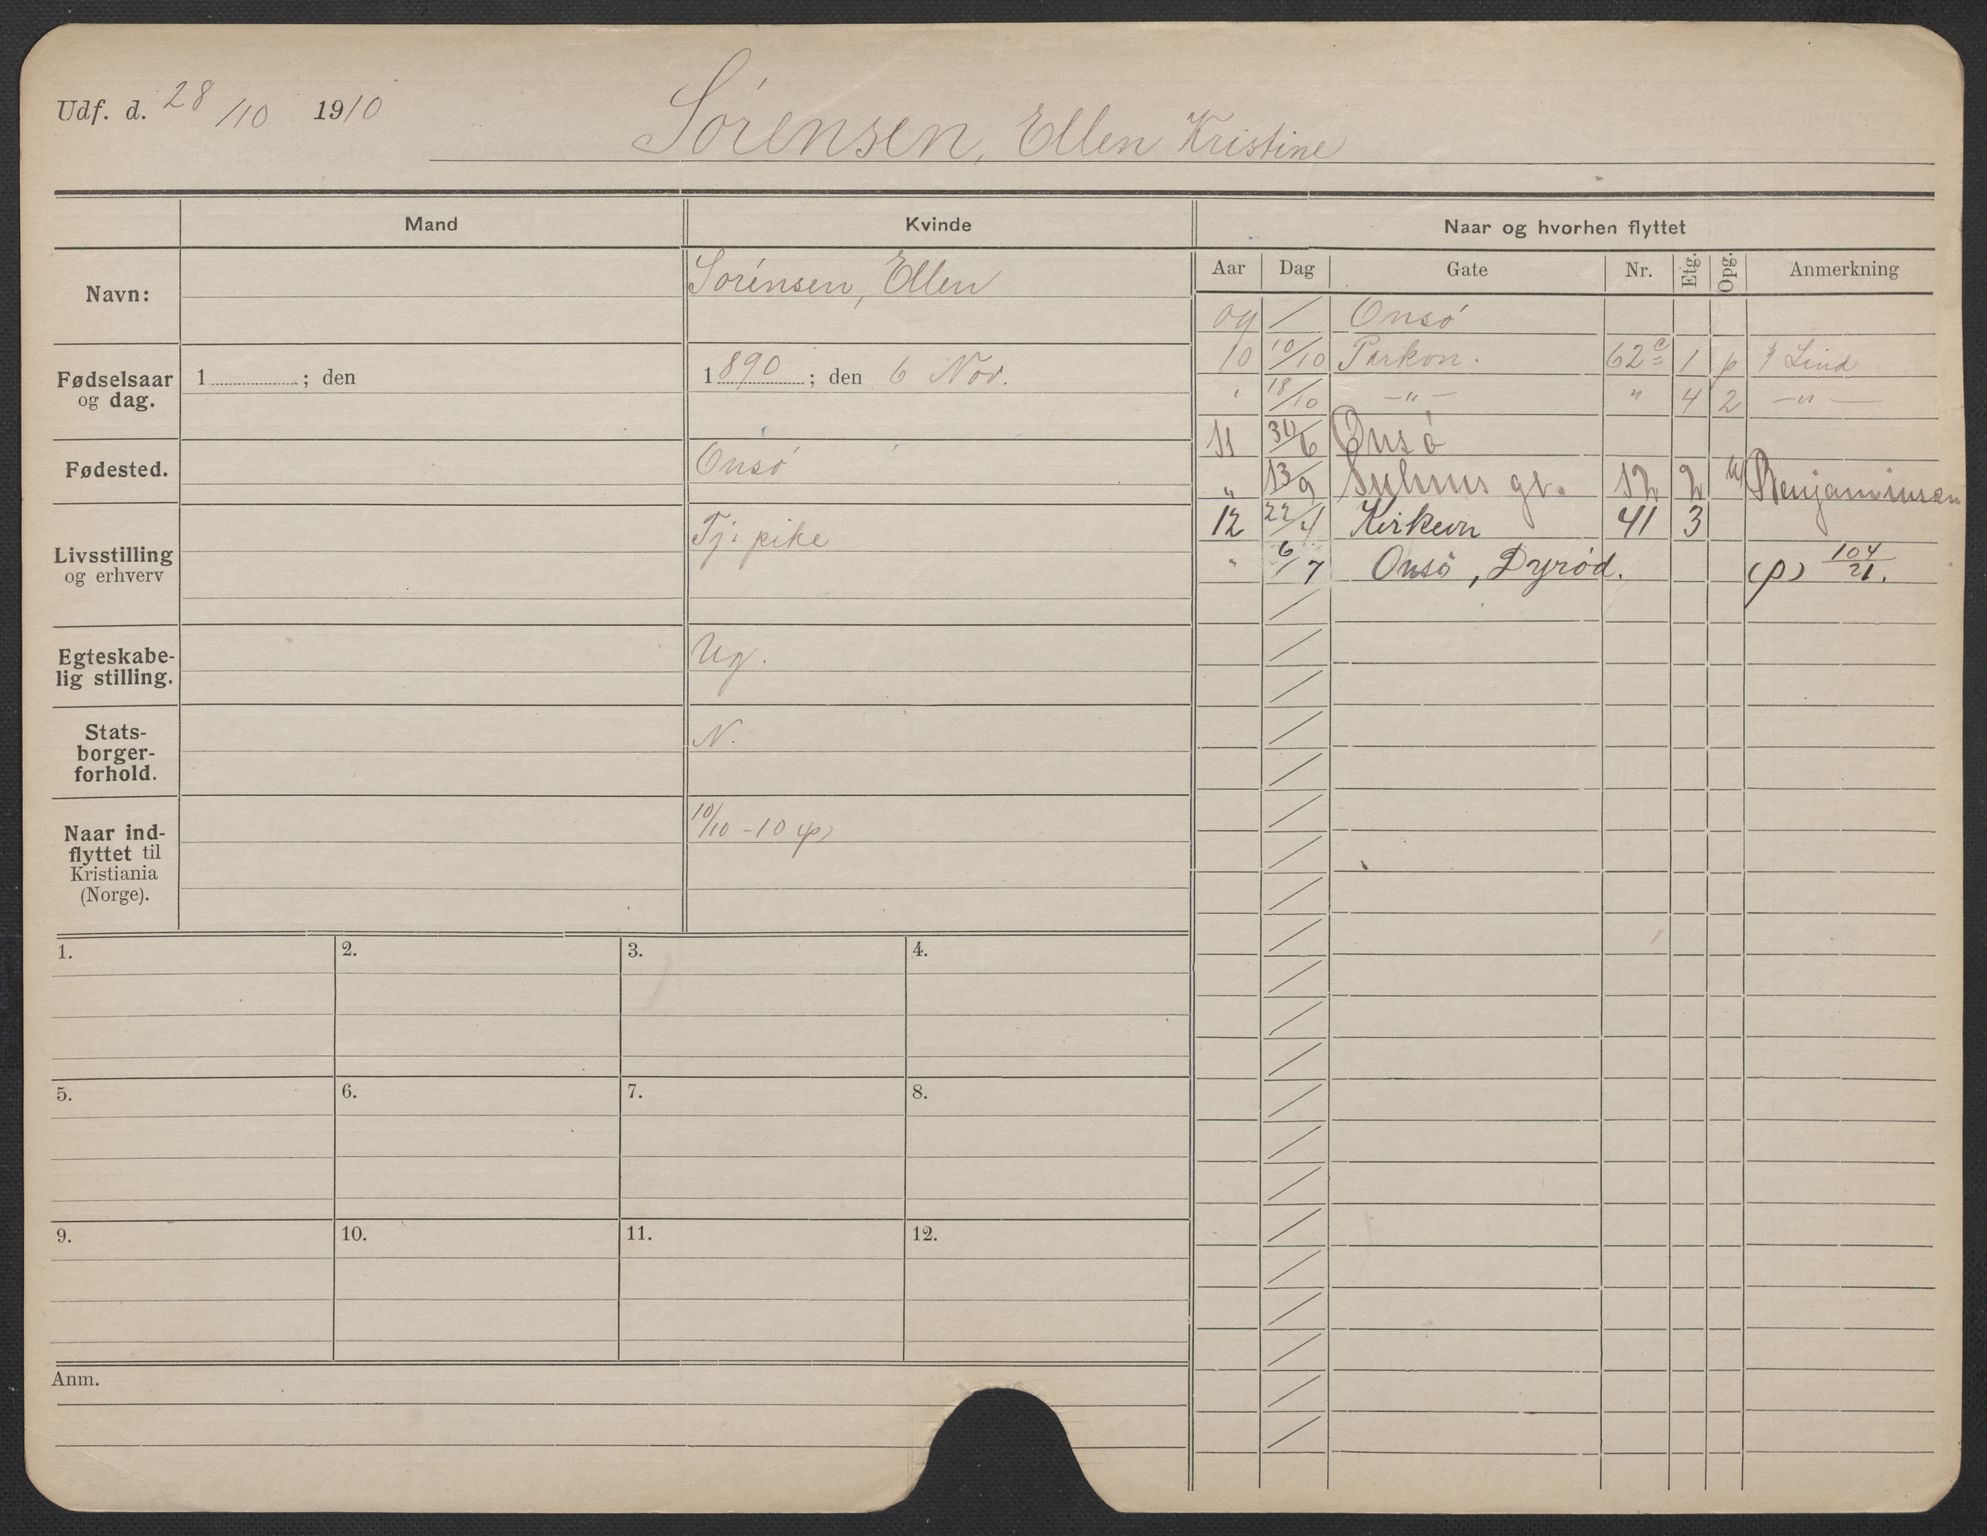 Udf. d. 28/10 1910
Sörensen, Ellen Kristine
Mand Kvinde Naar og hvorhen flyttet
Aar Dag Gate Nr. Etg. Opg. Anmerkning
Navn: Sörensen, Ellen
Fødselsaar og dag. 1 ; den 1890 ; den 6 Nov.
Fødested. Onsö
Livsstilling og erhverv Tj: pike
Egteskabe-
lig stilling. Ug.
Stats-
borger-
forhold. N.
Naar ind-
flyttet til
Kristiania
(Norge). 10/10 - 10 (p)
09 / Onsö
10 10/10 Parkvn. 62c 1 p Lind
" 18/10 -"- " 4 2 -"-
11 30/6 Onsö
" 13/9 Suhms gt. 12 2 Benjaminsen
12 22/4 Kirkevn 41 3
" 6/7 Onsö, Dyröd. (p) 104/21.
1. 2. 3. 4.
5. 6. 7. 8.
9. 10. 11. 12.
Anm.